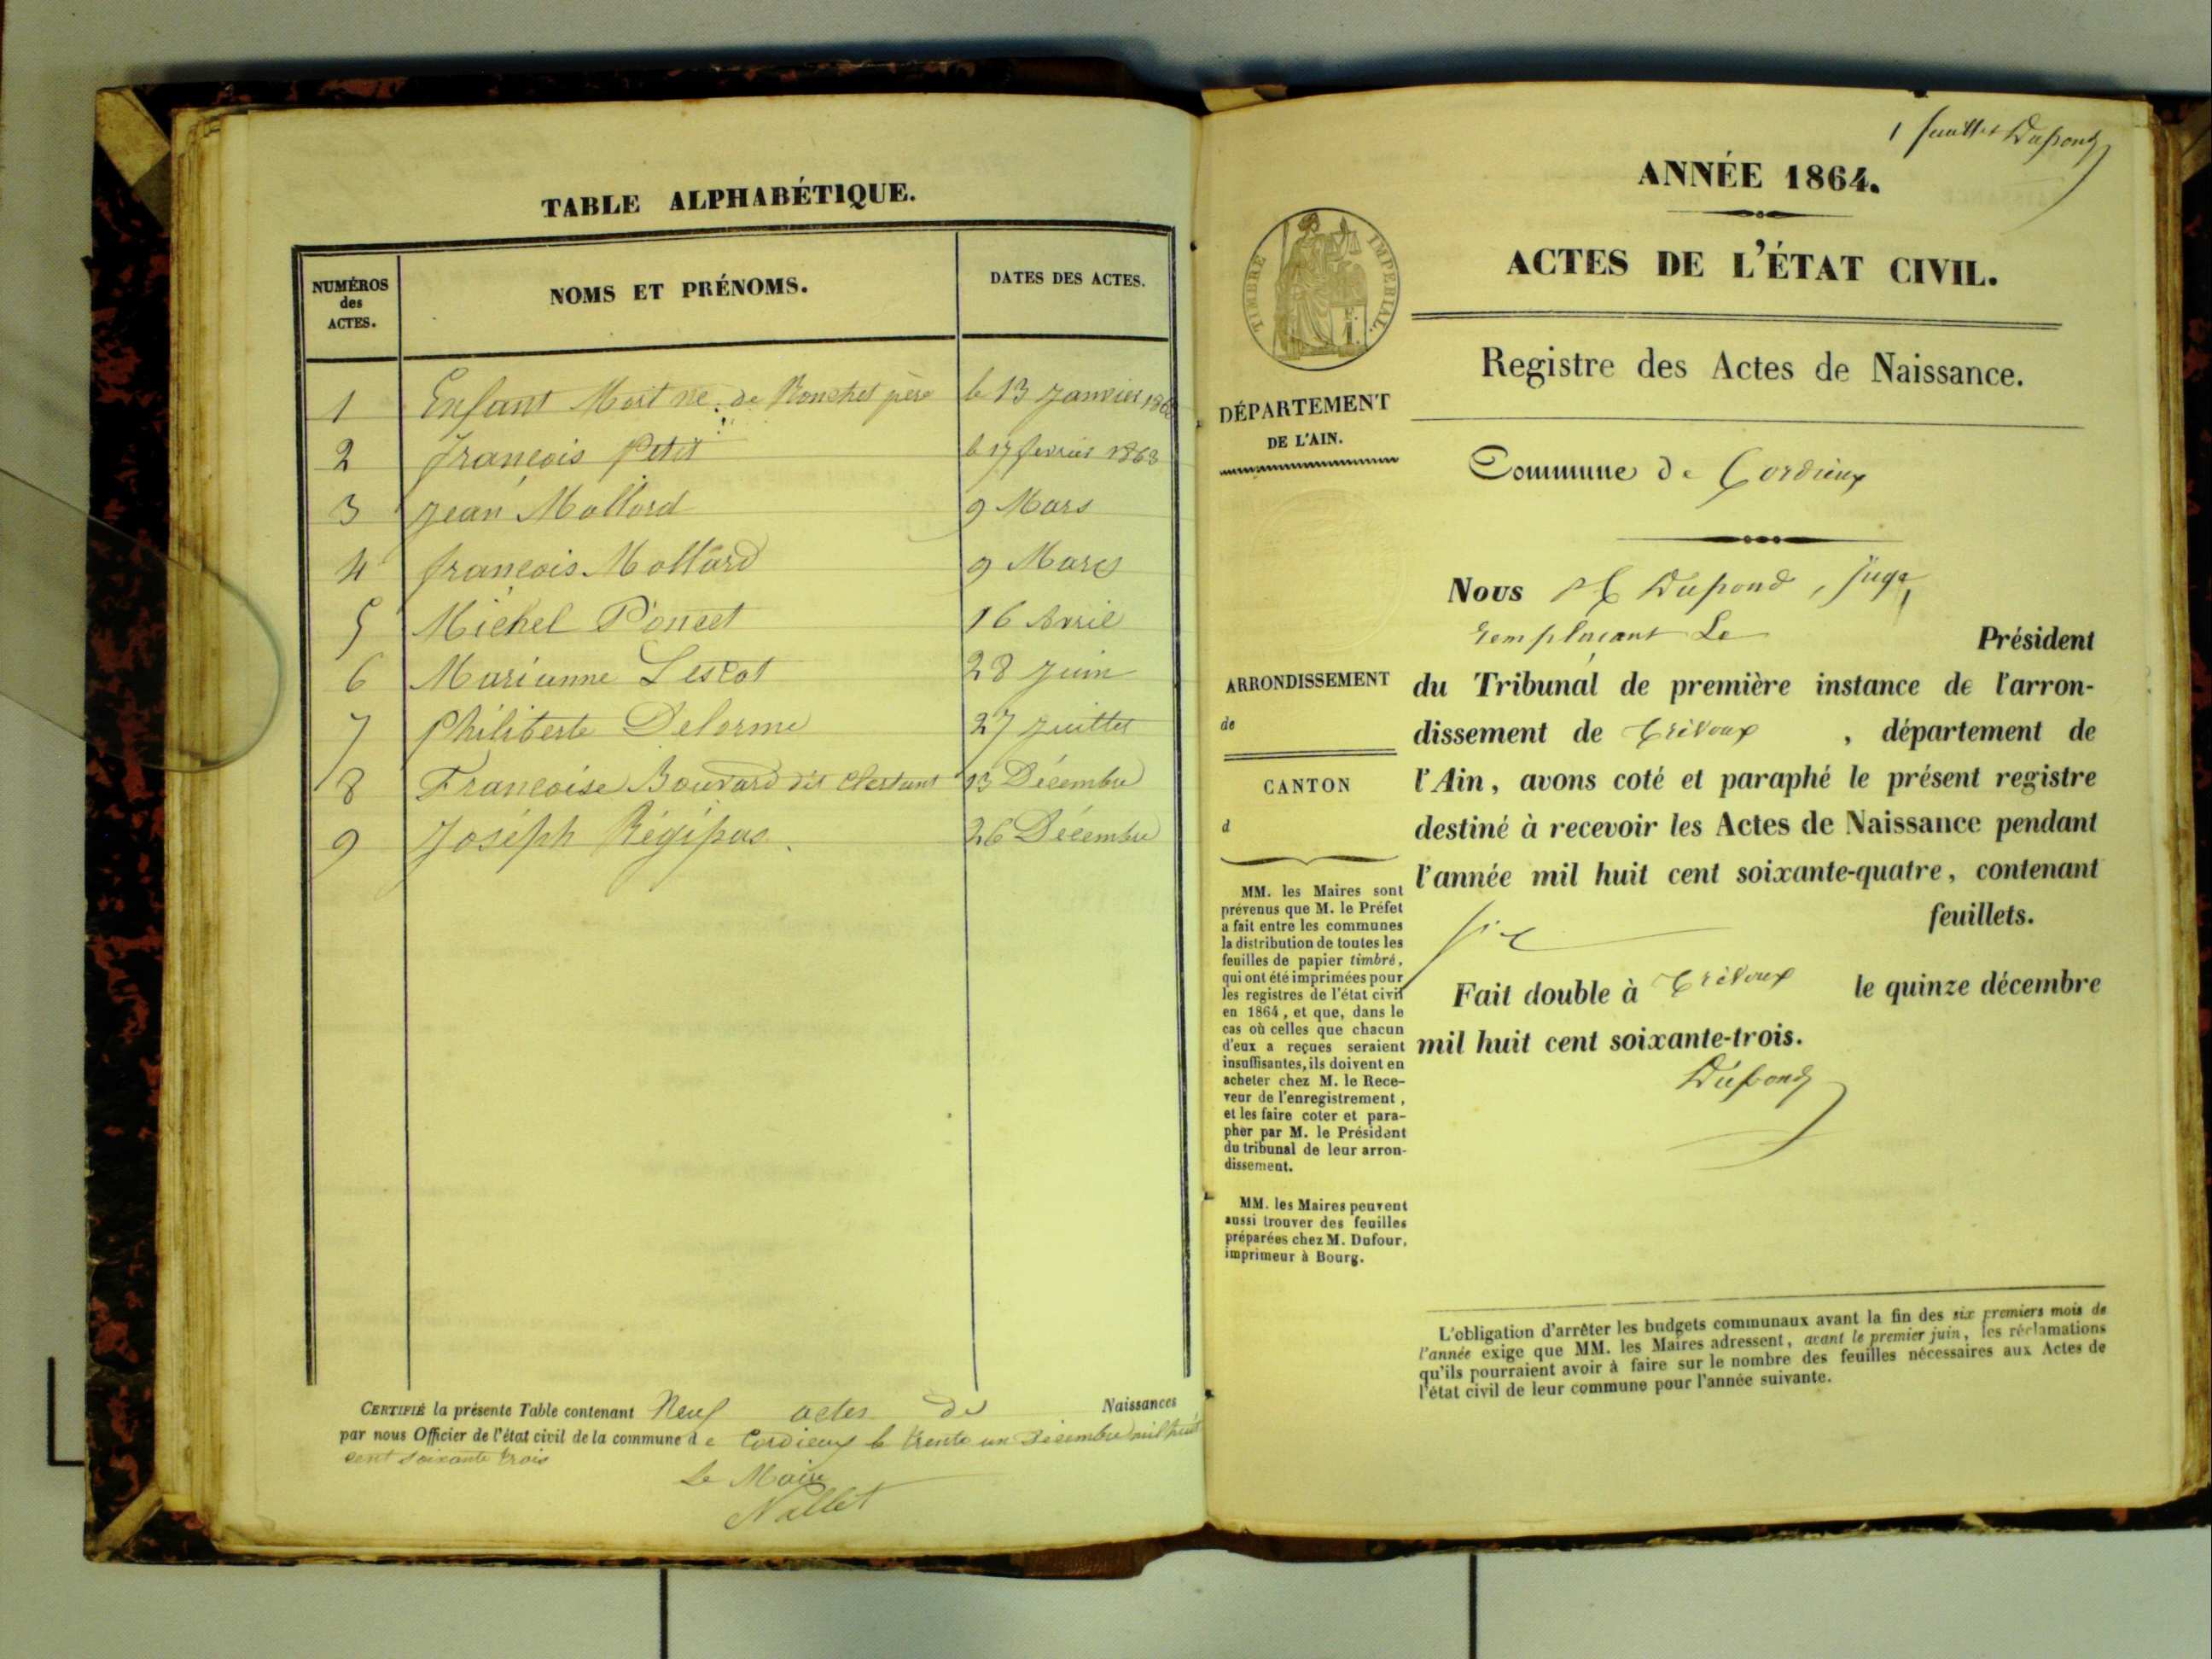 TABLE ALPHABÉTIQUE.
NUMÉROS des ACTES.
NOMS ET PRÉNOMS.
DATES DES ACTES.
1 Enfant Mort né de Ronchet père le 13 Janvier 186
2 François Petit le 17 fevrier 1863
3 Jean Mollard 9 Mars
4 François Mollard 9 Mars
5 Michel Poncet 16 Avril
6 Marianne Lescot 28 Juin
7 Philiberte Delorme 27 Juillet
8 Françoise Bouvard dit 13 Décembre
9 Joséph Régipas. 26 Décembre
CERTIFIÉ la présente Table contenant Neuf actes de Naissances
par nous Officier de l'état civil de la commune de Cordieux le trente un Décembre mil huit
cent soixante trois
Le Maire
Nallet
1 feuillet Dupond
ANNÉE 1864.
ACTES DE L'ÉTAT CIVIL.
TIMBRE IMPERIAL.
Registre des Actes de Naissance.
DÉPARTEMENT
DE L'AIN.
Commune de Cordieux
Nous Dupond, juge
remplaçant Le Président
ARRONDISSEMENT
de
CANTON
d
du Tribunal de première instance de l'arron-
dissement de Trévoux, département de
l'Ain, avons coté et paraphé le présent registre
destiné à recevoir les Actes de Naissance pendant
l'année mil huit cent soixante-quatre, contenant
six feuillets.
Fait double à Trévoux le quinze décembre
mil huit cent soixante-trois.
Dupond
MM. les Maires sont
prévenus que M. le Préfet
a fait entre les communes
la distribution de toutes les
feuilles de papier timbré,
qui ont été imprimées pour
les registres de l'état civil
en 1864, et que, dans le
cas où celles que chacun
d'eux a reçues seraient
insuffisantes, ils doivent en
acheter chez M. le Rece-
veur de l'enregistrement,
et les faire coter et para-
pher par M. le Président
du tribunal de leur arron-
dissement.
MM. les Maires peuvent
aussi trouver des feuilles
préparées chez M. Dufour,
imprimeur à Bourg.
L'obligation d'arrêter les budgets communaux avant la fin des six premiers mois de
l'année exige que MM. les Maires adressent, avant le premier juin, les réclamations
qu'ils pourraient avoir à faire sur le nombre des feuilles nécessaires aux Actes de
l'état civil de leur commune pour l'année suivante.